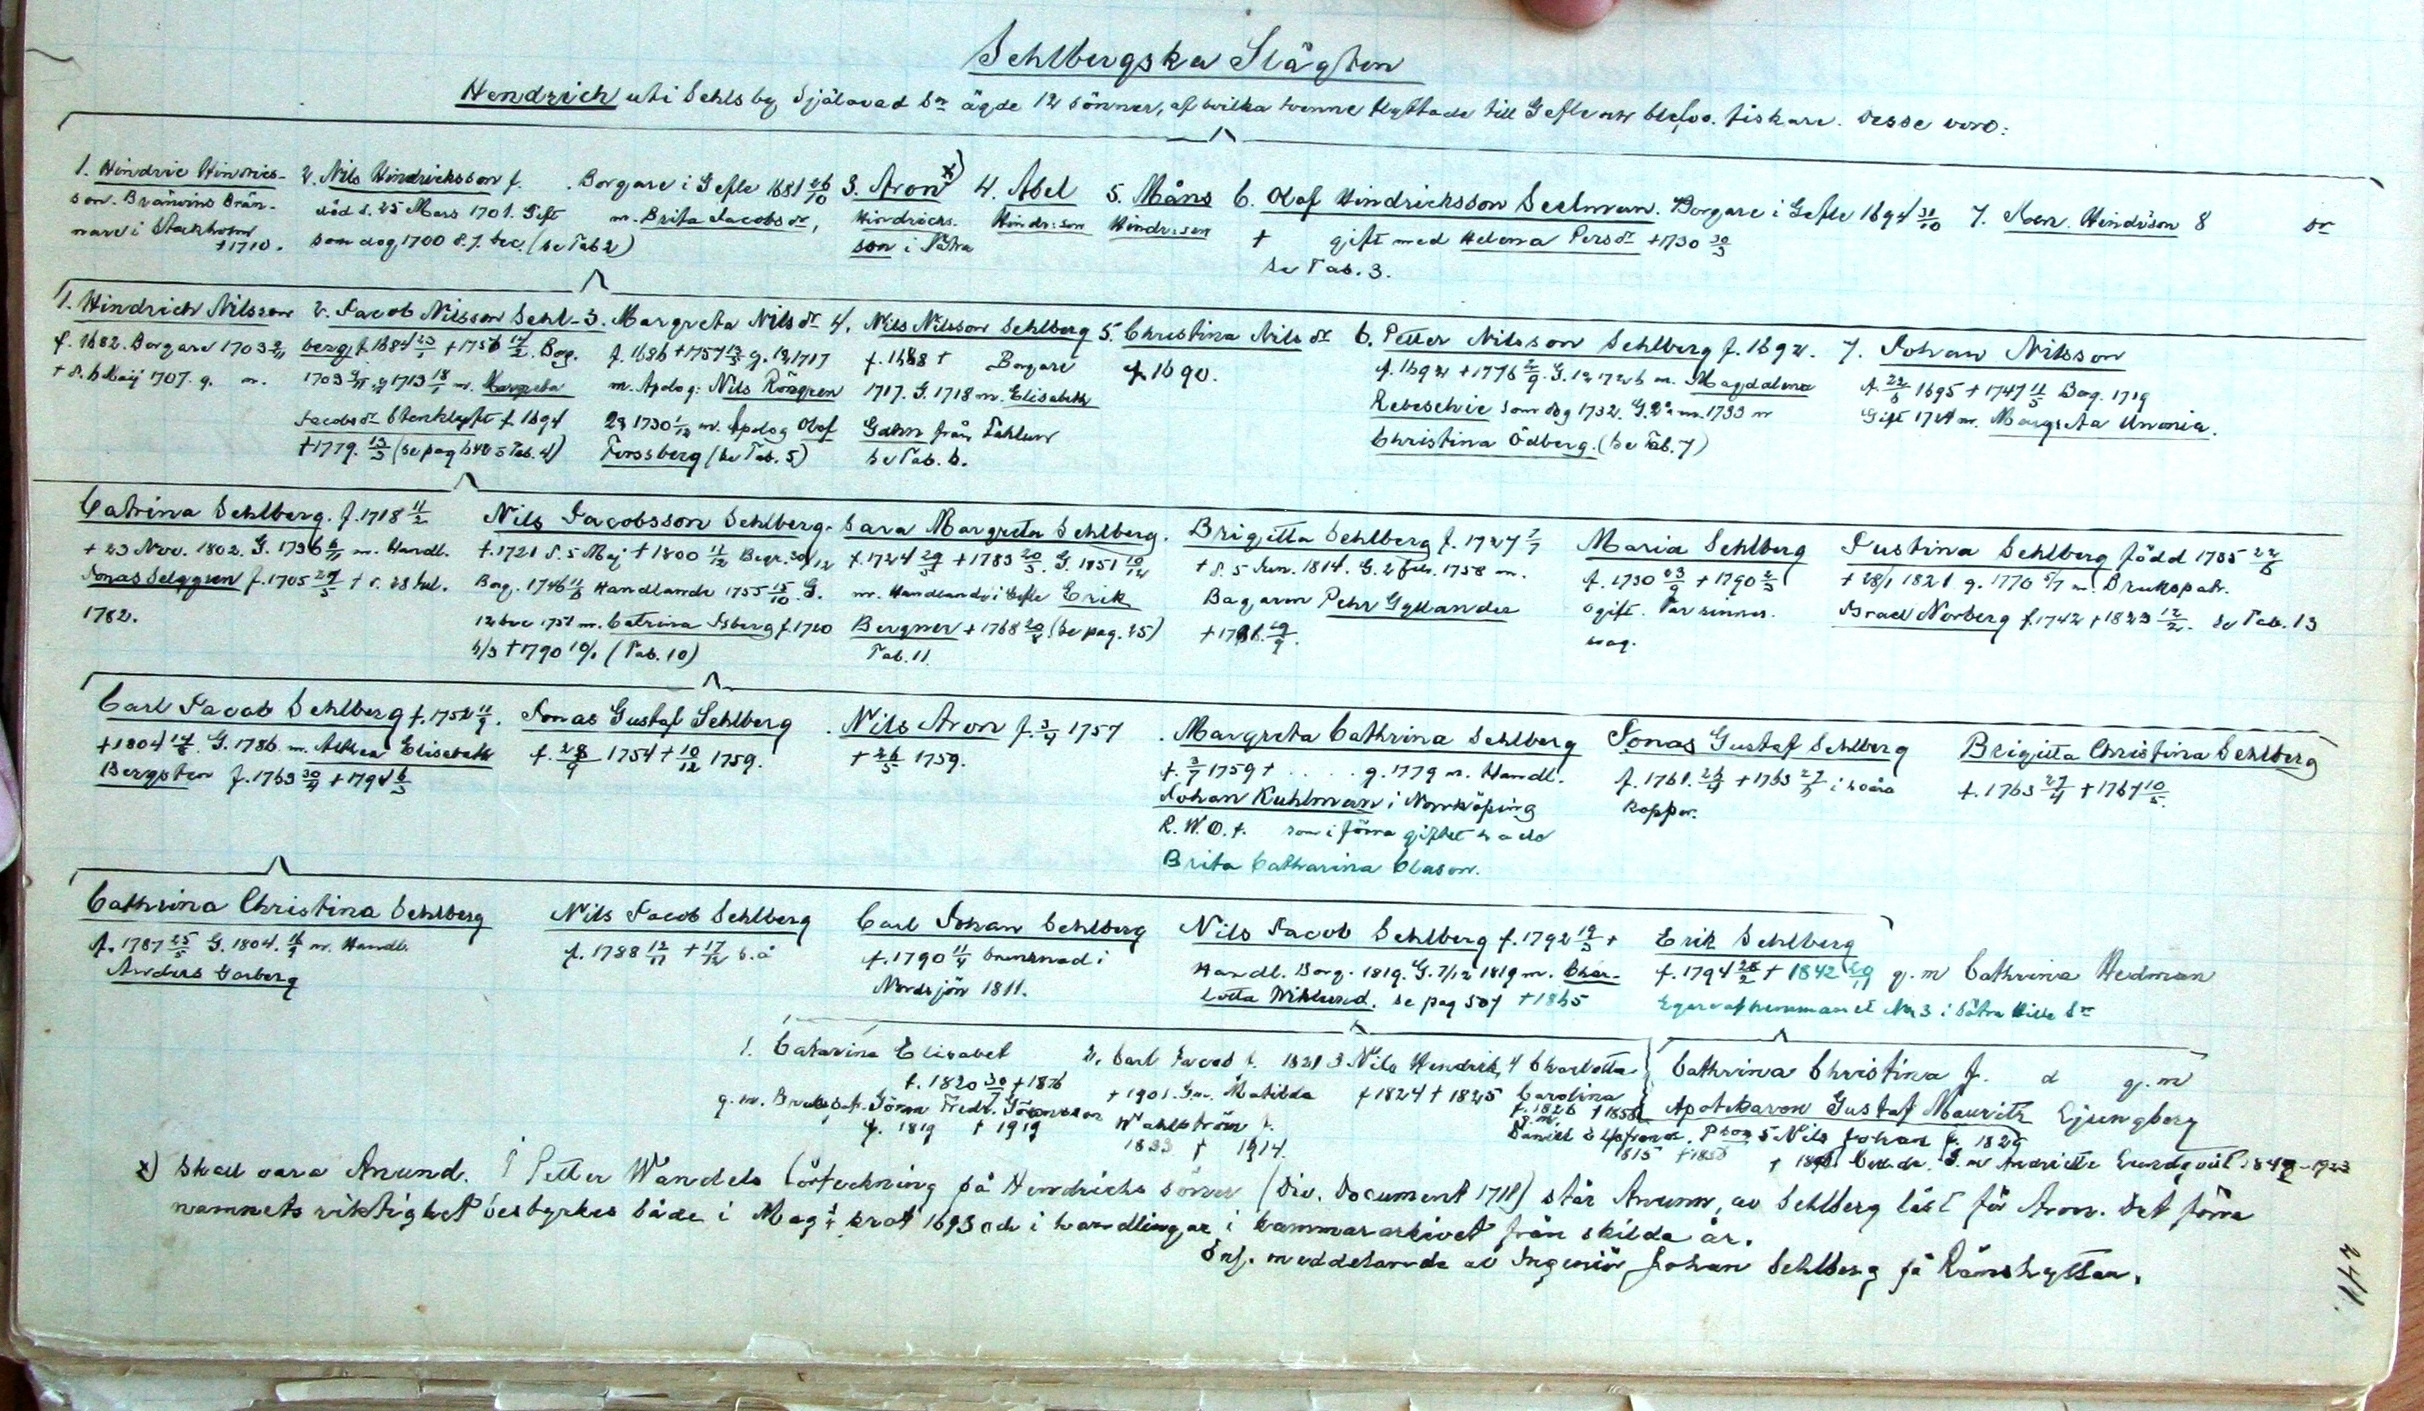 Sehlbergska Slägten
Hendrich uti Sehls by Själavad Sn ägde 12 sönner, af vilka tvenne flyttade till Gefle och blefvo fiskare. Desse voro:
1. Hindric Hindrics-
son. Bränvins Brän-
nare i Stockholm
†1710.
2. Nils Hindricksson f. . Borgare i Gefle 1681 26/10
död d. 25 Mars 1701. Gift m. Brita Jacobs dr,
som dog 1700 d. 7. dec. (se Tab 2)
3. Aron x)
Hindricks.
son i Sätra
4. Abel
Hindr:son
5. Måns
Hindr:son
6. Olaf Hindricksson Seelman. Borgare i Gefle 1694 31/10
† gift med Helena Pers dr †1730 30/3
se Tab. 3.
7. Hindrison 8 dr
1. Hindrich Nilsson
f. 1682. Borgare 1703
† d. 6 Maij 1707. g. m.
2. Jacob Nilsson Sehl-
berg f. 1684 23/1 †1756 14/2. Borg.
1703 g. 1713 18/1 m. Margreta
Jacobs dr Stenklyft f. 1694
†1779. 13/3 (se pag 640 5 Tab. 4)
3. Margreta Nils dr
f. 1686 †1757 13/5 g. 1a 1717
m. Apolog: Nils Röngren
2g 1730 1/12 m. Apolog Olof
Forssberg (se Tab. 5)
4. Nils Nilsson Sehlberg
f. 1688 † Borgare
1717. G. 1718 m. Elisabeth
Gahn från Fahlun
se Tab. 6.
5. Christina Nils dr
f. 1690.
6. Petter Nilsson Sehlberg f. 1692.
f. 1692 †1776 2/9. G. 1a 1726 m. Magdalena
Rebeschie som dog 1732. G. 2a m. 1733 m
Christina Ödberg. (se Tab. 7)
7. Johan Nilsson
f. 22/6 1695 †1747 11/5 Borg. 1719
Gift 1724 m. Margreta Unonia.
Catrina Sehlberg. f. 1718 11/2
† 23 Nov. 1802. G. 1736 m. Handl.
Jonas Selggren f. 1705 27/5 † d. 28 Jul.
1782.
Nils Jacobsson Sehlberg.
f. 1721 d. 5 Maj †1800 11/12 Begr. 30/12
Borg. 1746 11/6 Handlande 1755 15/10. G.
12 dec 1751 m. Catrina Isberg f. 1720
6/3 †1790 10/1 (Tab. 10)
Sara Margreta Sehlberg.
f. 1724 29/5 †1783 20/5. G. 1751 10/12
m. Handlande i Gefle Erik
Bergner †1768 20/4 (se pag. 25)
Tab. 11.
Brigitta Sehlberg f. 1727 7/7
† d. 5 Jun. 1814. G. 2 Feb. 1758 m.
Bagaren Pehr Gyllander
†1781. 29/9.
Maria Sehlberg
f. 1730 23/9 †1790 2/3
ogift. Var sinnes-
svag.
Justina Sehlberg född 1735 22/6
† 28/1 1821 g. 1770 5/7 m. Brukspatr.
Israel Norberg f. 1742 †1823 12/2. se Tab. 13
Carl Jacob Sehlberg f. 1752 11/9.
†1804 14/6. G. 1786 m. Althea Elisabeth
Bergsten f. 1763 30/4 †1794 6/3
Jonas Gustaf Sehlberg
f. 28/9 1754 † 10/12 1759.
Nils Aron f. 3/4 1757
† 26/5 1759.
Margreta Cathrina Sehlberg
f. 3/7 1759 † . . . . . g. 1779 m. Handl.
Johan Kuhlman i Norrköping
R. W. O. f. som i förra giftet hade
Brita Catharina Clason.
Jonas Gustaf Sehlberg
f. 1761. 26/4 †1763 27/6 i svåra
koppor.
Brigitta Christina Sehlberg
f. 1763 27/4 †1767 10/5.
Cathrina Christina Sehlberg
f. 1787 25/5 G. 1804. 16/9 m. Handl.
Anders Garberg
Nils Jacob Sehlberg
f. 1788 12/11 † 17/12 s. å
Carl Johan Sehlberg
f. 1790 11/4 drunknad i
Nordsjön 1811.
Nils Jacob Sehlberg f. 1792 19/3 †
Handl. Borg. 1819. G. 7/12 1819 m. Char-
lotta Wiklund. se pag 507 †1865
Erik Sehlberg
f. 1794 28/2 † 1842 g. m Cathrina Hedman
Egare af hemmanet No 3 i Sätra Hille Sn
1. Catarina Elisabet
f. 1820 30/7 †1876
g. m. Brukspatr. Göran Fredr. Göransson
f. 1819 † 1919
2. Carl Jacob f. 1821
† 1901. G. m. Matilda
Wahlström f.
1833 † 1914.
3 Nils Hendrik
f 1824 † 1825
4 Charlotta
Carolina
f. 1826 †1858
g. m.
Daniel
1815 †1858
5 Nils Johan f. 1829
G. m Andriette Lundqvist 1842-1923
Cathrina Christina f. d g. m
Apotekaren Gustaf Mauritz Ljungberg
x) Skall vara Anund. I Petter Wandels förteckning på Hendrichs söner (Div. Document 1718) står Anunn, av Sehlberg läst för Aron. Det förra
namnets riktighet bestyrkes både i Mag:s prot 1693 och i handlingar i kammararkivet från skilda år.
Enl. meddelande av Ingeniör Johan Sehlberg på Rämshyttan.
241.